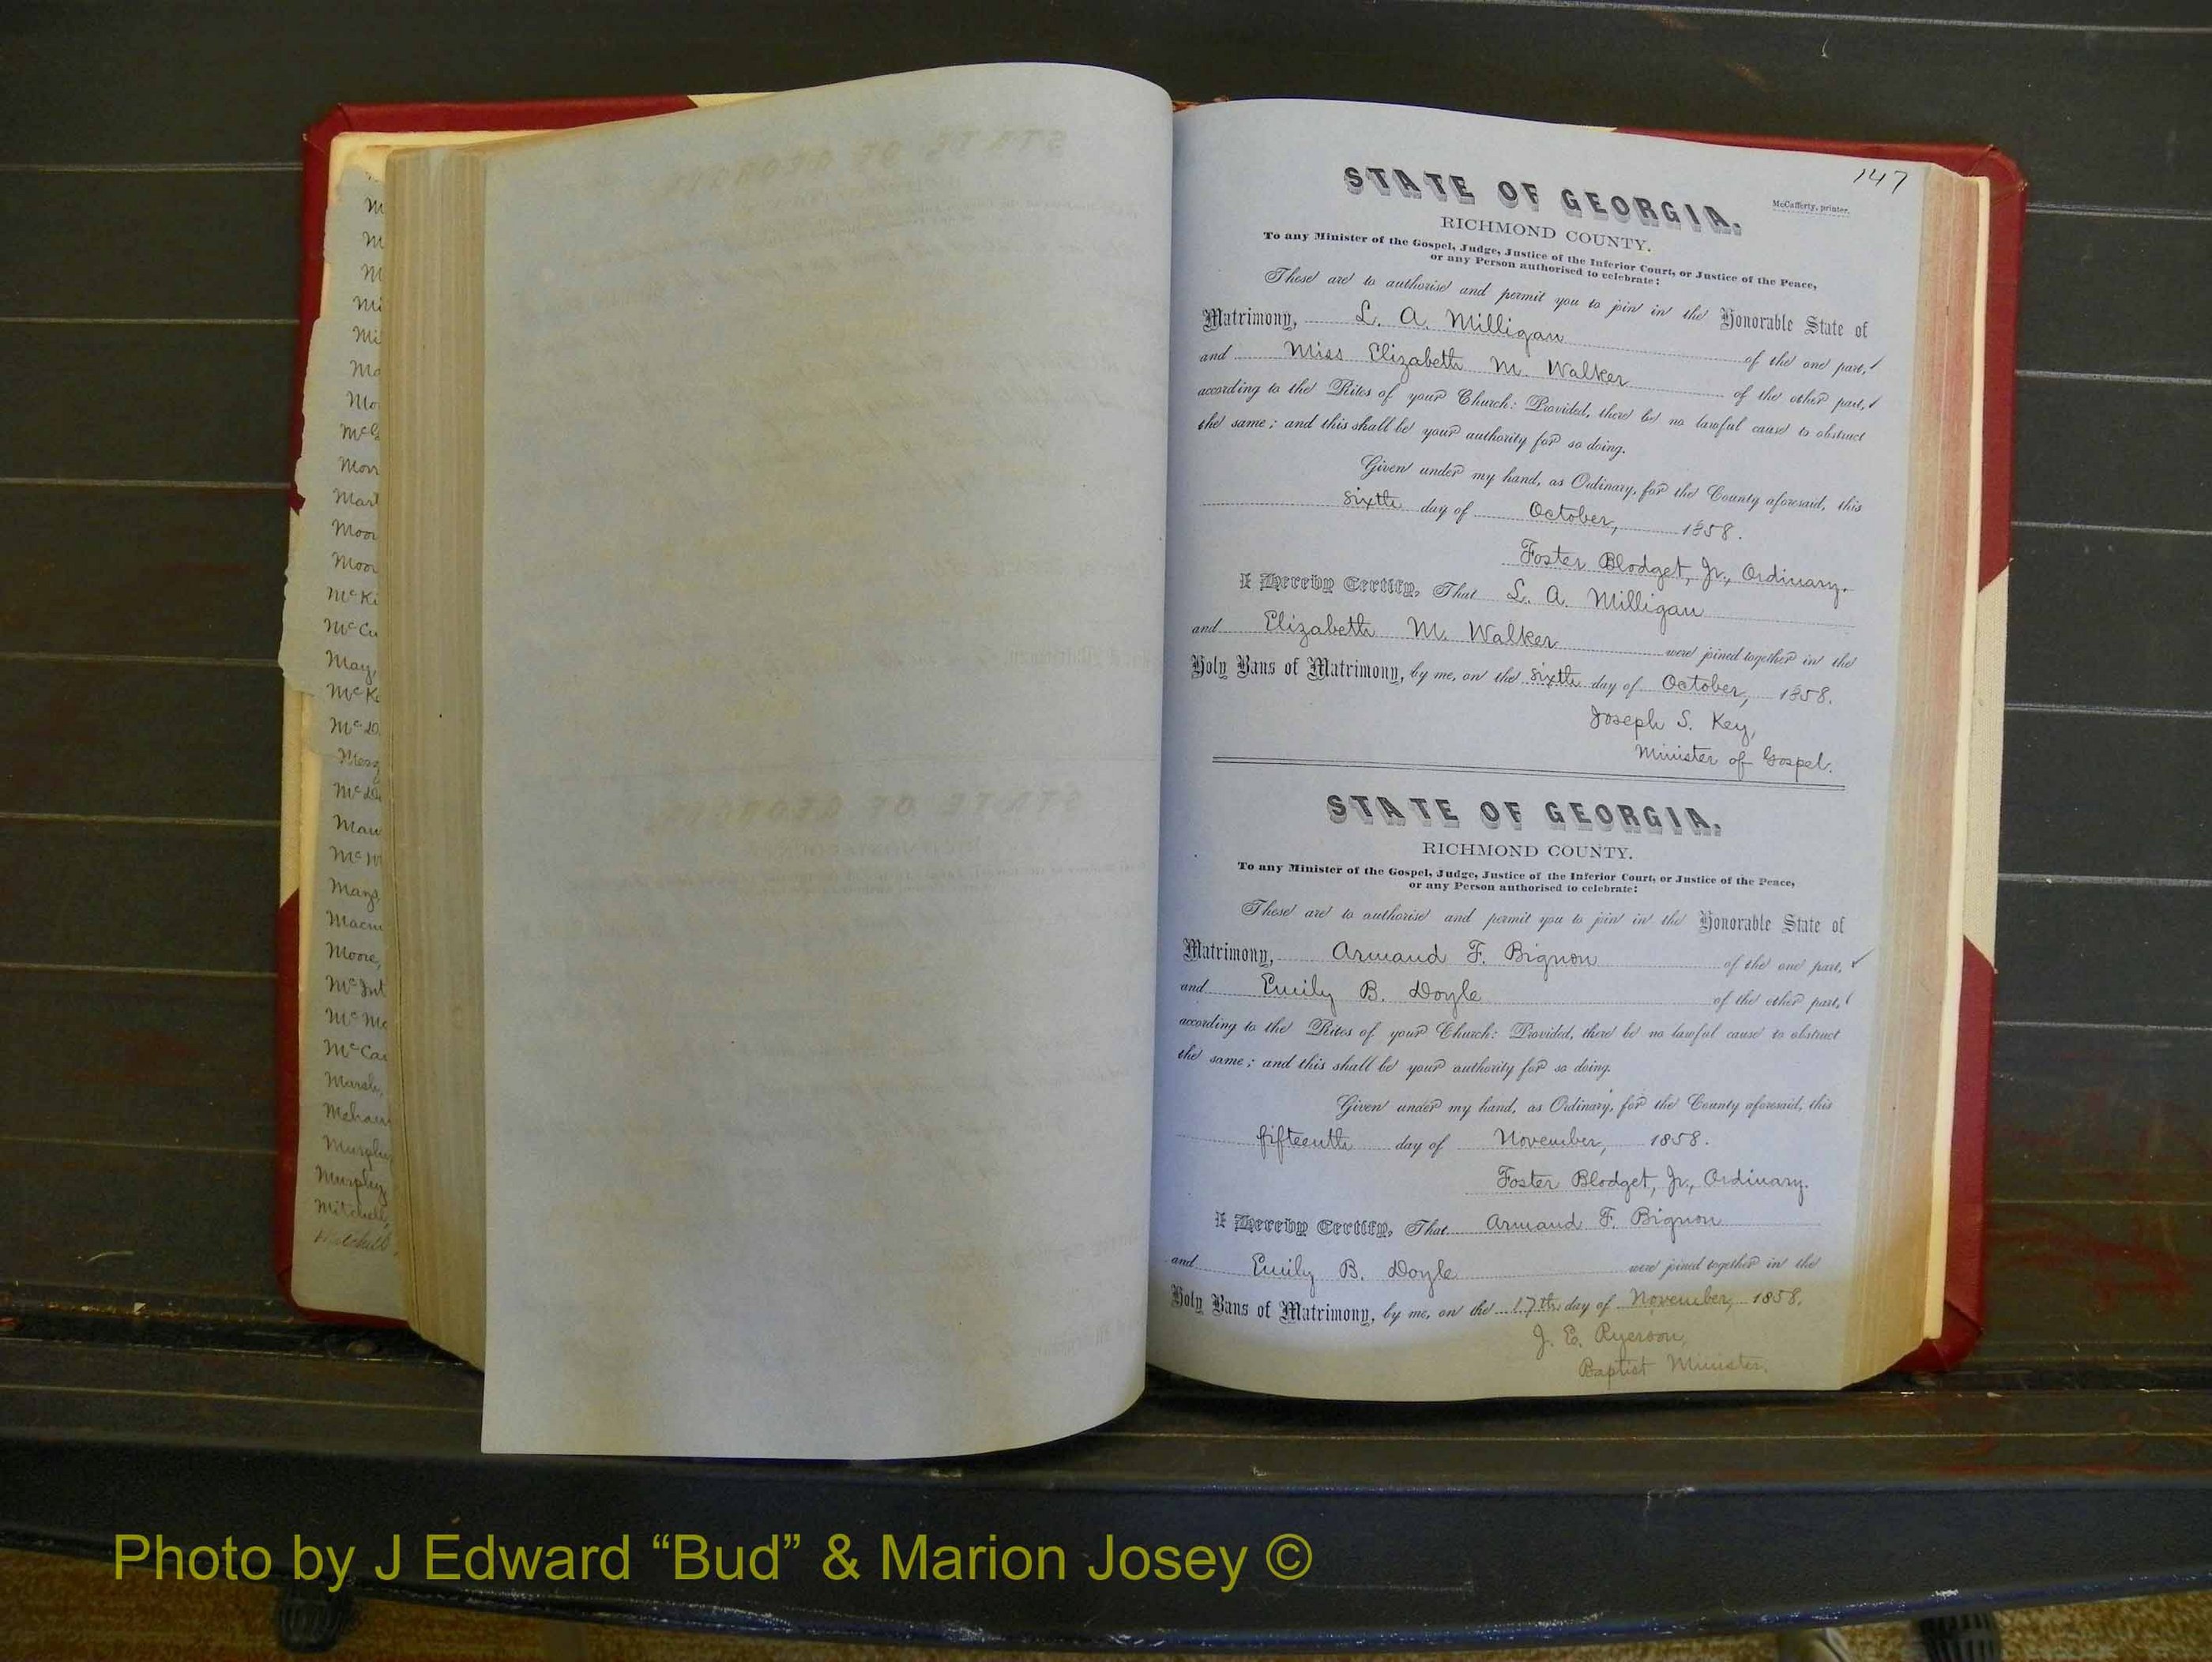 147
STATE OF GEORGIA.
McCafferty, printer.
RICHMOND COUNTY.
To any Minister of the Gospel, Judge, Justice of the Inferior Court, or Justice of the Peace,
or any Person authorised to celebrate:
These are to authorise and permit you to join in the Honorable State of
Matrimony, L. A. Milligan of the one part,
and Miss Elizabeth M. Walker of the other part,
according to the Rites of your Church: Provided, there be no lawful cause to obstruct
the same; and this shall be your authority for so doing.
Given under my hand, as Ordinary, for the County aforesaid, this
sixth day of October, 1858.
Foster Blodget, Jr., Ordinary.
I Hereby Certify, That L. A. Milligan
and Elizabeth M. Walker were joined together in the
Holy Bans of Matrimony, by me, on the sixth day of October, 1858.
Joseph S. Key,
Minister of Gospel.
STATE OF GEORGIA.
RICHMOND COUNTY.
To any Minister of the Gospel, Judge, Justice of the Inferior Court, or Justice of the Peace,
or any Person authorised to celebrate:
These are to authorise and permit you to join in the Honorable State of
Matrimony, Armand F. Bignon of the one part,
and Emily B. Doyle of the other part,
according to the Rites of your Church: Provided, there be no lawful cause to obstruct
the same; and this shall be your authority for so doing.
Given under my hand, as Ordinary, for the County aforesaid, this
fifteenth day of November, 1858.
Foster Blodget, Jr., Ordinary.
I Hereby Certify, That Armand F. Bignon
and Emily B. Doyle were joined together in the
Holy Bans of Matrimony, by me, on the 17th day of November, 1858.
J. E. Ryerson,
Baptist Minister.
Photo by J Edward “Bud” & Marion Josey ©